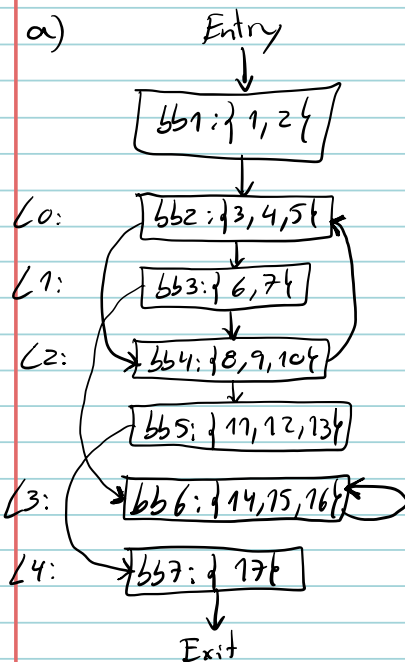 a) Entry
bb1:{1,2}
L0: bb2:{3,4,5}
L1: bb3:{6,7}
L2: bb4:{8,9,10}
bb5:{11,12,13}
L3: bb6:{14,15,16}
L4: bb7:{17}
Exit